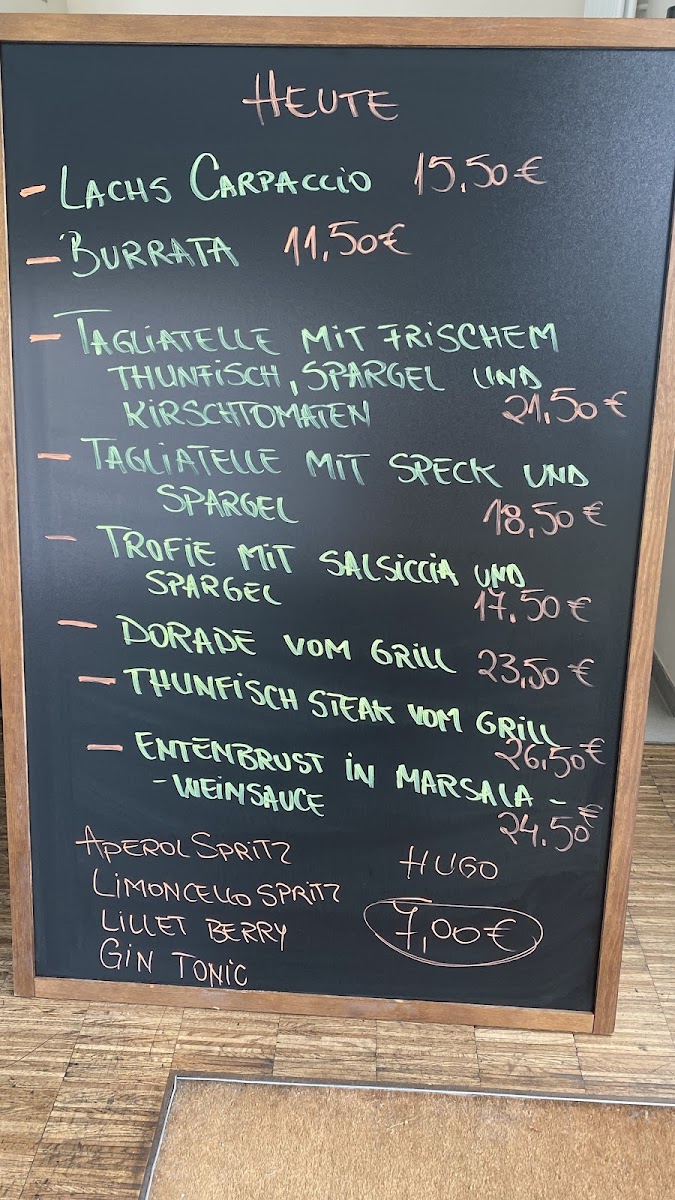 HEUTE
- LACHS CARPACCIO 15,50 €
- BURRATA 11,50 €
- TAGLIATELLE MIT FRISCHEM
THUNFISCH, SPARGEL UND
KIRSCHTOMATEN 21,50 €
- TAGLIATELLE MIT SPECK UND
SPARGEL 18,50 €
- TROFIE MIT SALSICCIA UND
SPARGEL 17,50 €
- DORADE VOM GRILL 23,50 €
- THUNFISCH STEAK VOM GRILL
26,50 €
- ENTENBRUST IN MARSALA -
-WEINSAUCE
24,50 €
APEROL SPRITZ
HUGO
LIMONCELLO SPRITZ
LILLET BERRY
7,00 €
GIN TONIC